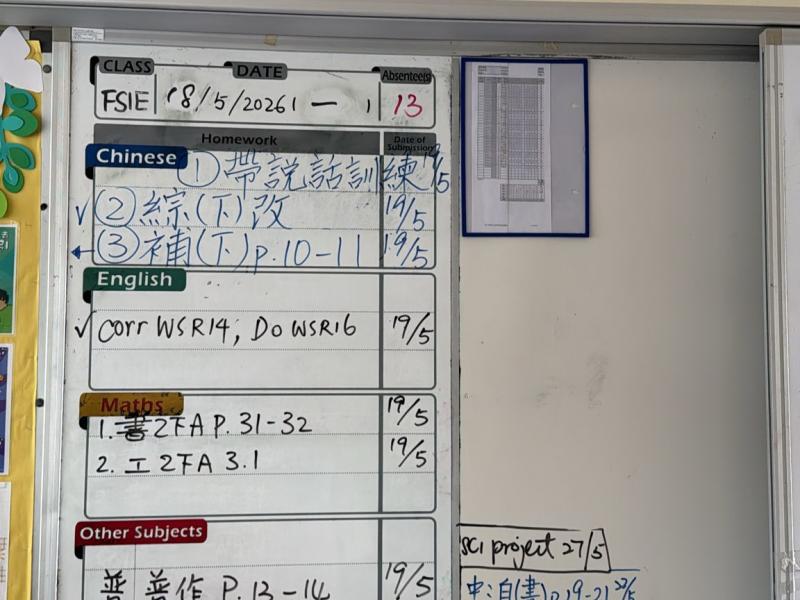 CLASS DATE Absentee(s)
FSIE 18/5/2026 一 13
Homework Date of Submission
Chinese ①帶説話訓練 19/5
✓②綜(下)改 19/5
←③補(下)p.10-11 19/5
English
✓Corr WSR14, Do WSR16 19/5
Maths
1. 書2下A P. 31-32 19/5
2. 工2下A 3.1 19/5
Other Subjects
普 普作 P.13-14 19/5
sci project 27/5
中:自(書)p.19-21